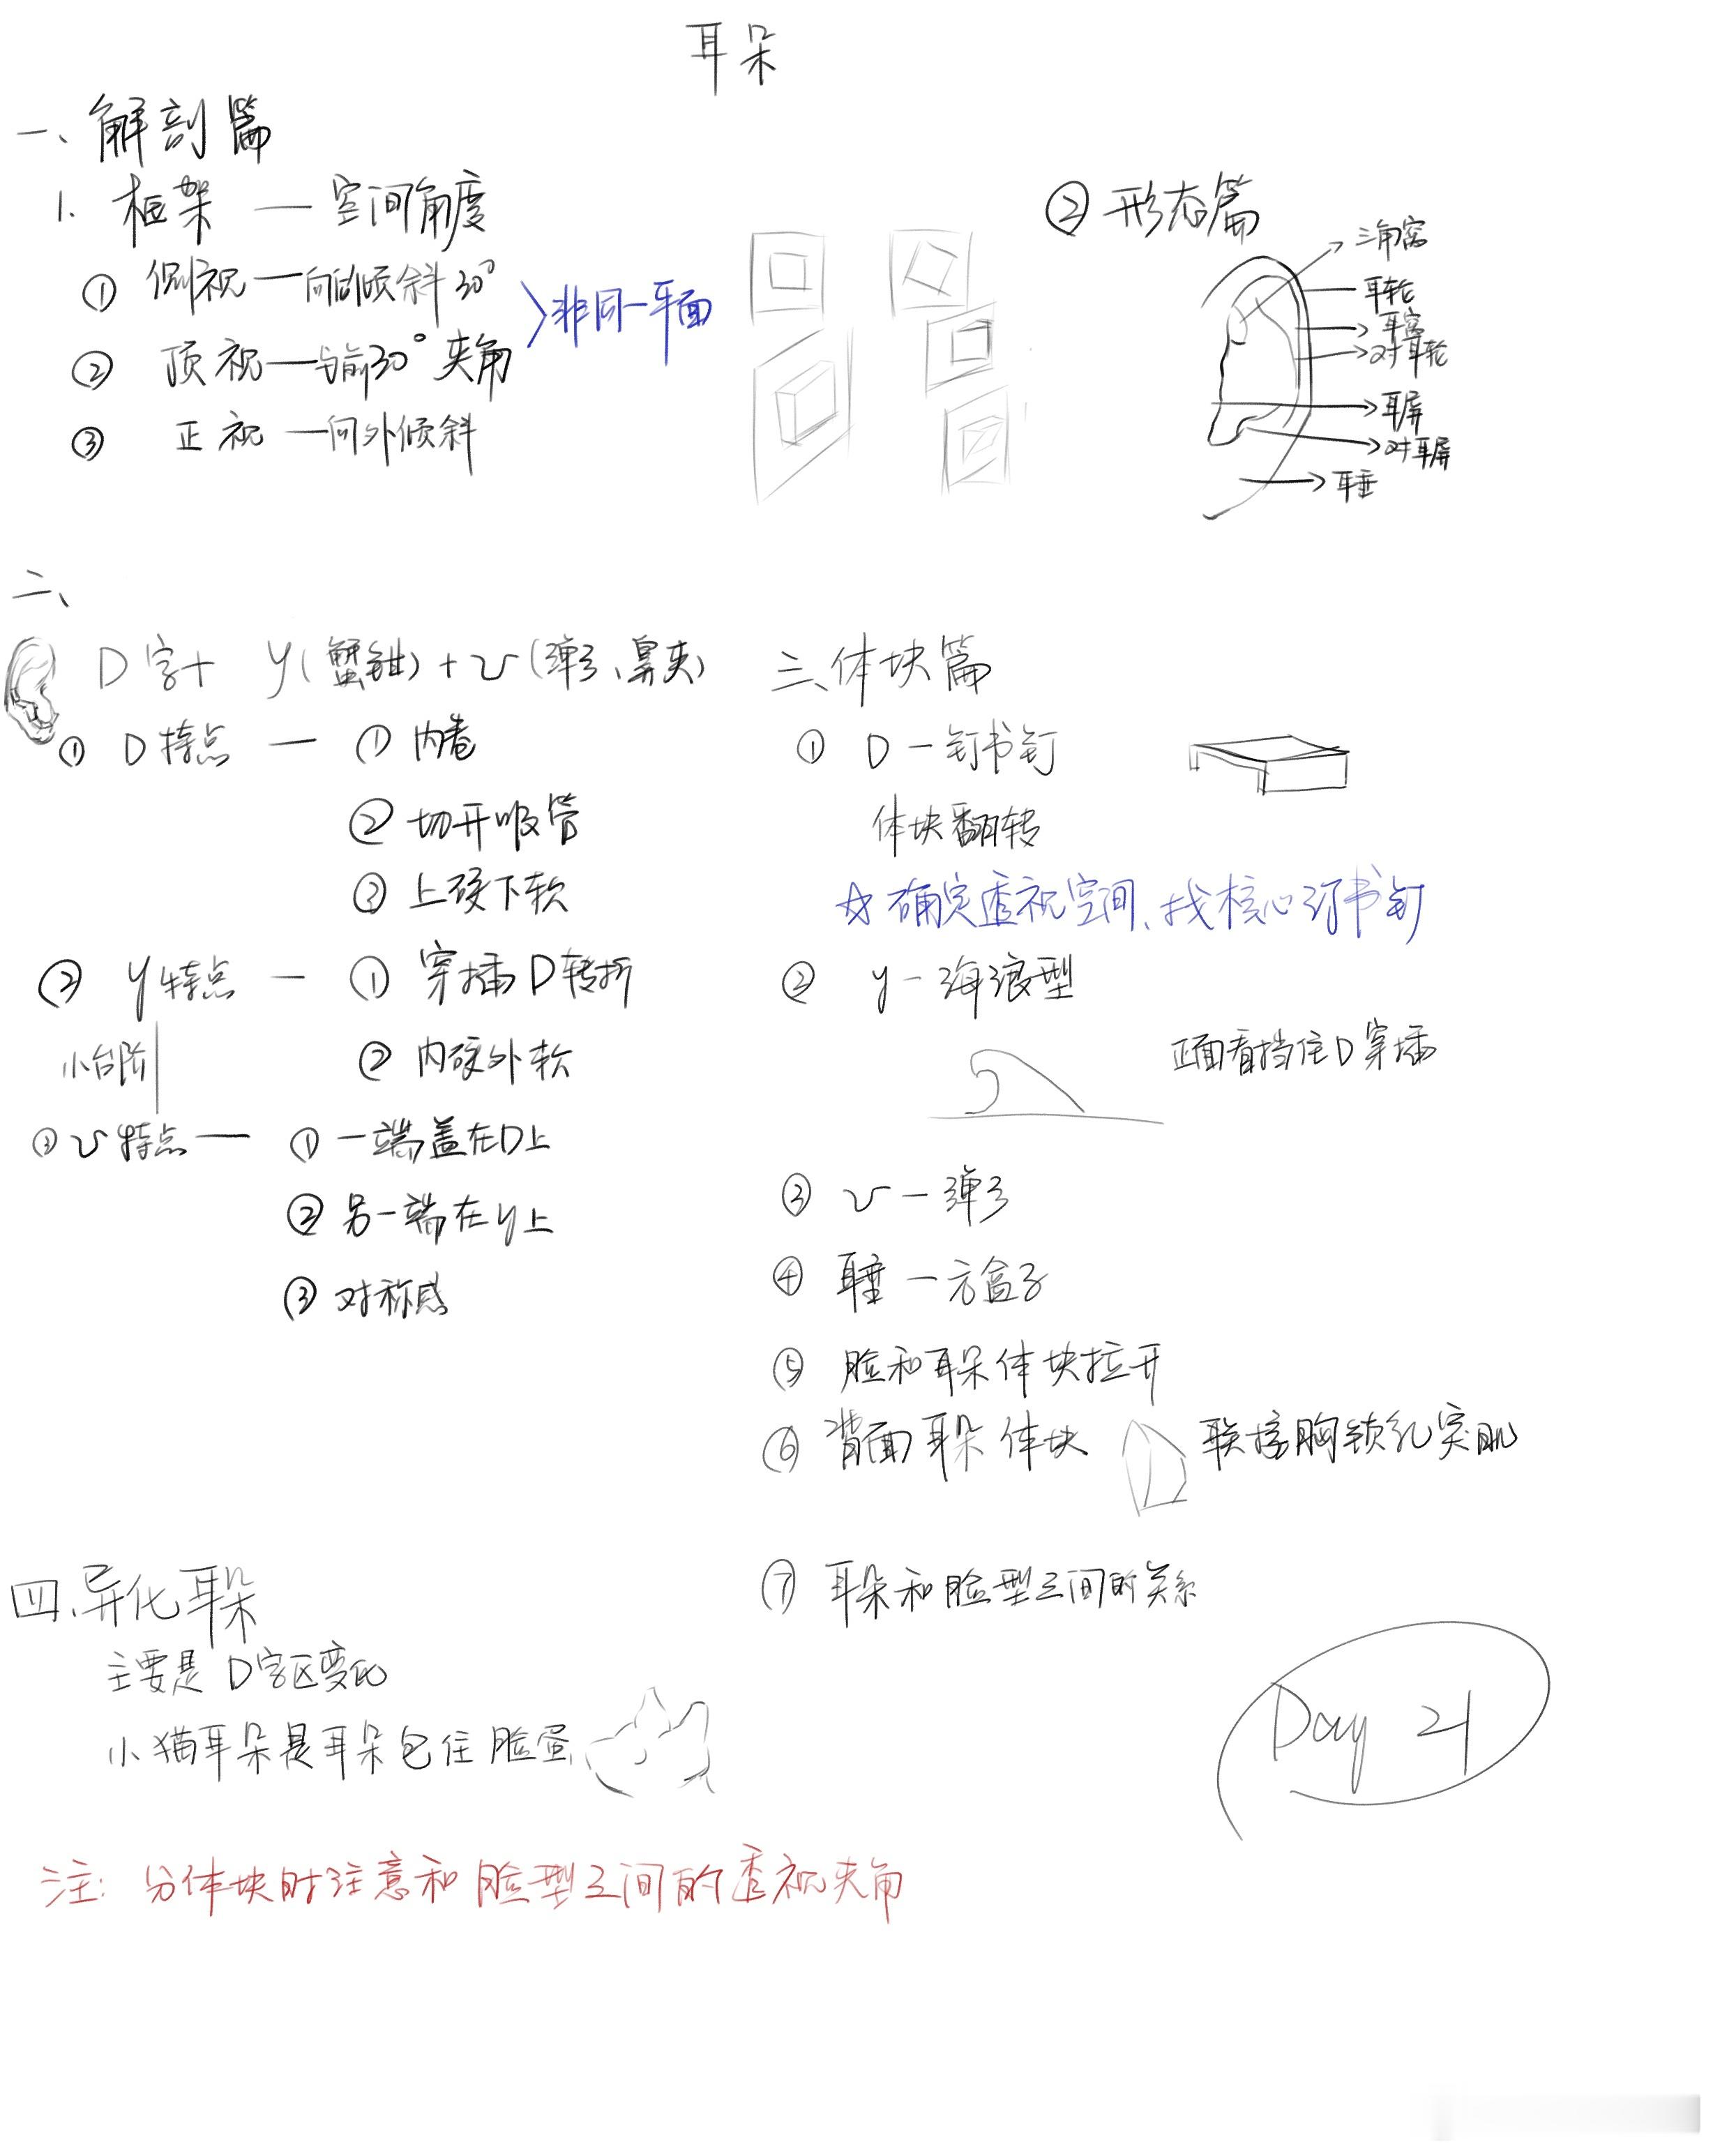 耳朵
一、解剖篇
1. 框架 — 空间角度
① 侧视 — 向后倾斜30°
② 顶视 — 与前30°夹角
>非同一平面
③ 正视 — 向外倾斜
② 形态篇
三角窝
耳轮
耳窝
对耳轮
耳屏
对耳屏
耳垂
二、
D字+ y(蟹钳)+ν(弹弓、鼻夹)
① D特点 — ① 内卷
② 切开吸管
③ 上硬下软
② y特点 — ① 穿插D转折
小台阶
② 内硬外软
③ ν特点 — ① 一端盖在D上
② 另一端在y上
③ 对称感
三、体块篇
① D — 钉书钉
体块翻转
☆ 确定透视空间、找核心订书钉
② y — 海浪型
正面看挡住D穿插
③ ν — 弹弓
④ 耳垂 — 方盒子
⑤ 脸和耳朵体块拉开
⑥ 背面耳朵体块 联接胸锁乳突肌
⑦ 耳朵和脸型之间的关系
四.异化耳朵
主要是D字区变化
小猫耳朵是耳朵包住脸蛋
Day 21
注: 分体块时注意和脸型之间的透视夹角